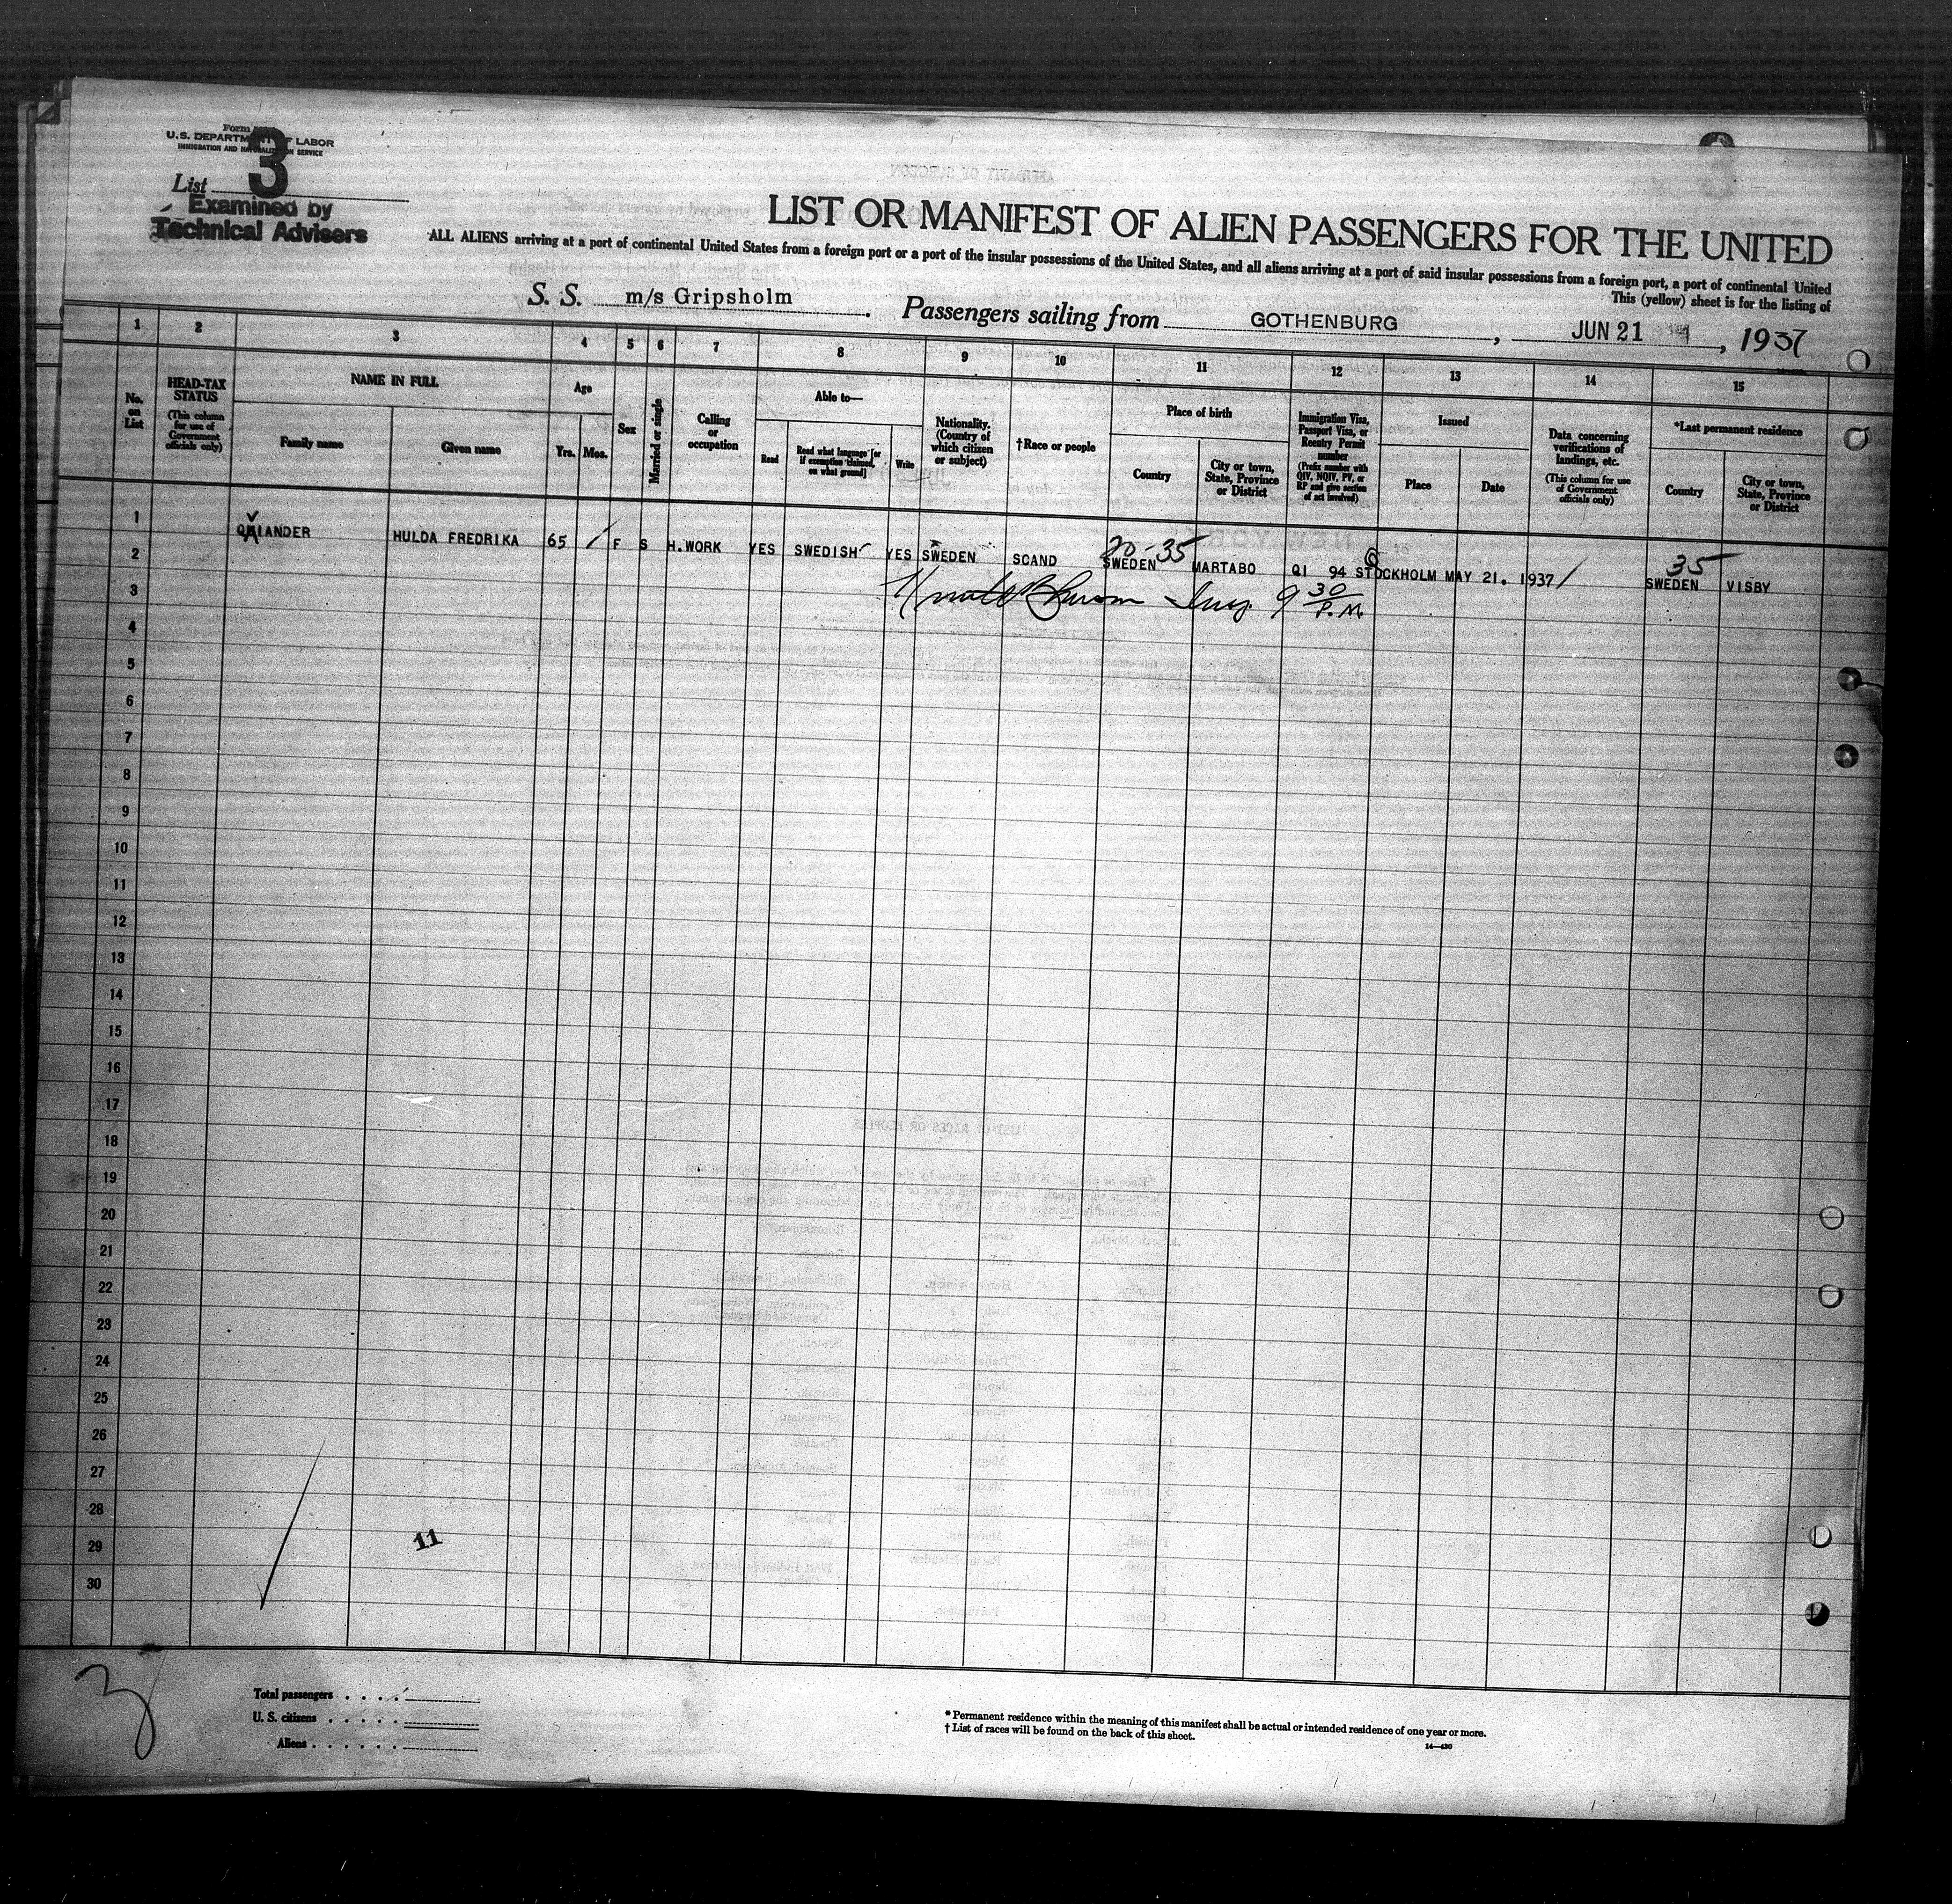 Form
U.S. DEPARTMENT OF LABOR
IMMIGRATION AND NATURALIZATION SERVICE
List 3
Examined by
Technical Advisers
LIST OR MANIFEST OF ALIEN PASSENGERS FOR THE UNITED
ALL ALIENS arriving at a port of continental United States from a foreign port or a port of the insular possessions of the United States, and all aliens arriving at a port of said insular possessions from a foreign port, a port of continental United
This (yellow) sheet is for the listing of
S. S. m/s Gripsholm. Passengers sailing from GOTHENBURG, JUN 21, 1937
1 2 3 4 5 6 7 8 9 10 11 12 13 14 15
No. on List
HEAD-TAX STATUS
(This column for use of Government officials only)
NAME IN FULL
Family name
Given name
Age
Yrs. Mos.
Sex
Married or single
Calling or occupation
Able to—
Read
Read what language [or if exemption claimed, on what ground]
Write
Nationality. (Country of which citizen or subject)
†Race or people
Place of birth
Country
City or town, State, Province or District
Immigration Visa, Passport Visa, or Reentry Permit number
(Prefix number with QIV, NQIV, PV, or RP and give section of act involved)
Issued
Place
Date
Data concerning verifications of landings, etc.
(This column for use of Government officials only)
*Last permanent residence
Country
City or town, State, Province or District
1 HULDA FREDRIKA 65 F S H.WORK YES SWEDISH YES SWEDEN SCAND SWEDEN MARTABO QI 94 STOCKHOLM MAY 21. 1937 SWEDEN VISBY
20-35
35
9 30 P.M.
2
3
4
5
6
7
8
9
10
11
12
13
14
15
16
17
18
19
20
21
22
23
24
25
26
27
28
29
30
11
3
Total passengers
U. S. citizens
Aliens
* Permanent residence within the meaning of this manifest shall be actual or intended residence of one year or more.
† List of races will be found on the back of this sheet.
14—430